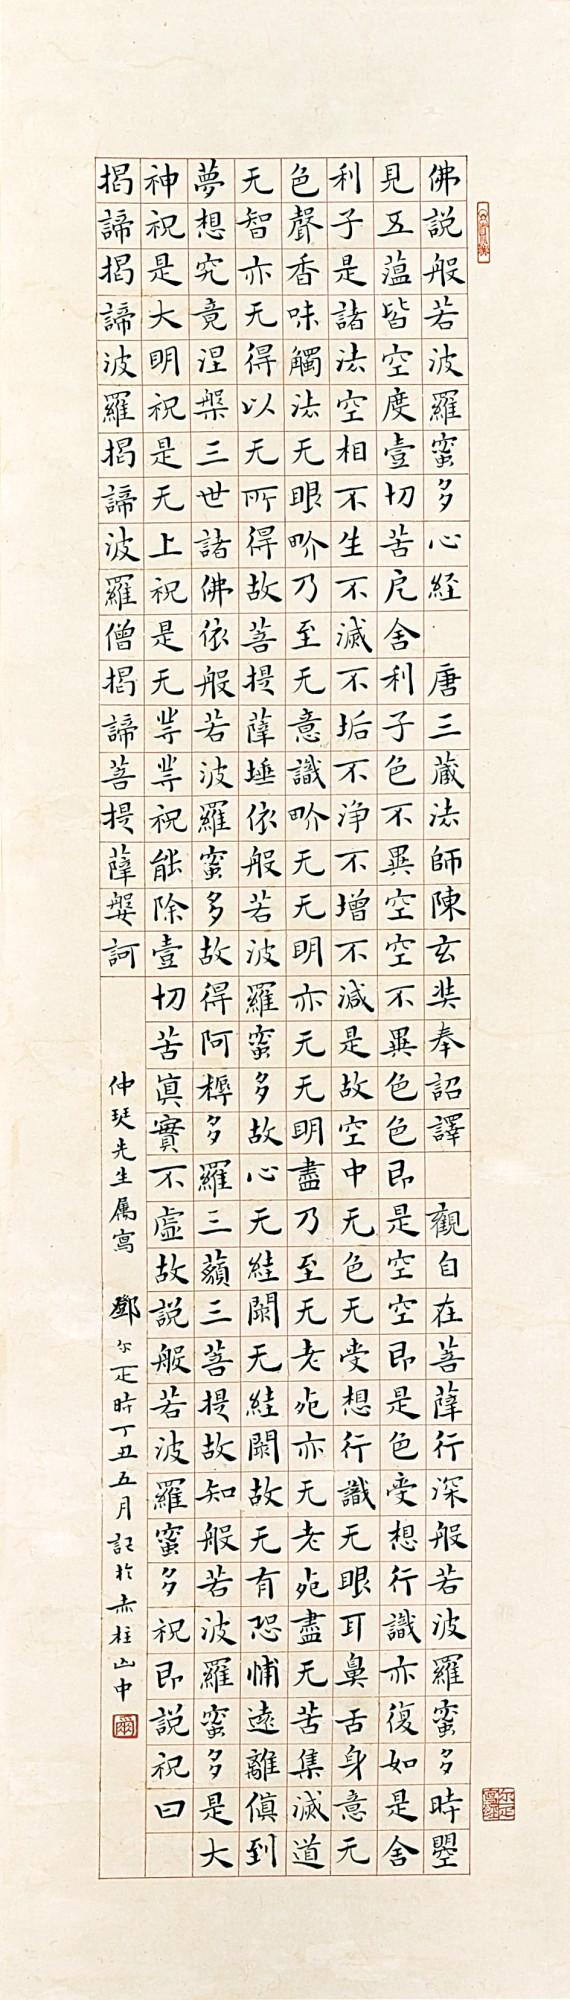 佛說般若波羅蜜多心経 唐三藏法師陳玄奘奉詔譯 觀自在菩薩行深般若波羅蜜多時曌
見五蕰皆空度壹切苦戹舍利子色不異空空不異色色即是空空即是色受想行識亦復如是舍
利子是諸法空相不生不滅不垢不淨不增不減是故空中无色无受想行識无眼耳鼻舌身意无
色聲香味觸法无眼畍乃至无意識畍无无明亦无无明盡乃至无老死亦无老死盡无苦集滅道
无智亦无得以无所得故菩提薩埵依般若波羅蜜多故心无絓閡无絓閡故无有恐怖遠離傎到
夢想究竟涅槃三世諸佛依般若波羅蜜多故得阿槈多羅三藐三菩提故知般若波羅蜜多是大
神祝是大明祝是无上祝是无等等祝能除壹切苦眞實不虛故說般若波羅蜜多祝即說祝曰
揭諦揭諦波羅揭諦波羅僧揭諦菩提薩婆訶
仲先生属寫 鄧尔疋時丁丑五月記於赤柱山中